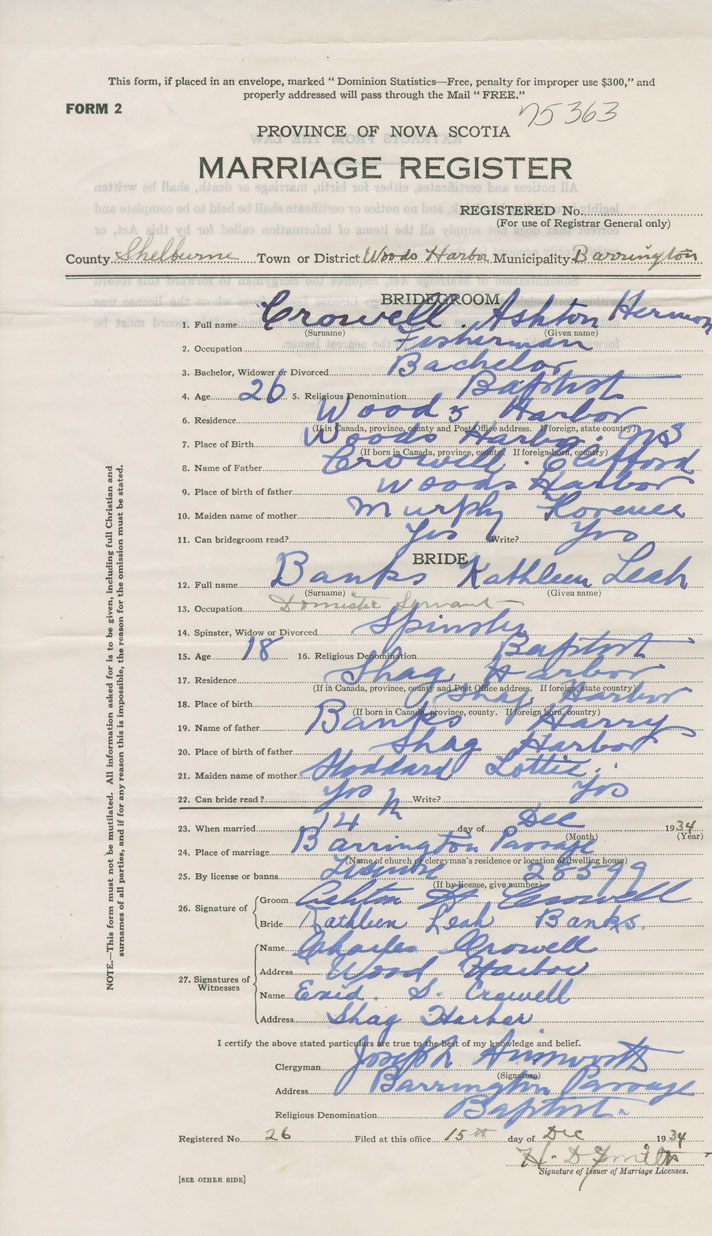 This form, if placed in an envelope, marked “ Dominion Statistics—Free, penalty for improper use $300,” and
properly addressed will pass through the Mail “ FREE.”
FORM 2
75363
PROVINCE OF NOVA SCOTIA
MARRIAGE REGISTER
REGISTERED No.
(For use of Registrar General only)
County Shelburne Town or District Woods Harbor Municipality Barrington
BRIDEGROOM
1. Full name Crowell Ashton Hermon
(Surname) (Given name)
2. Occupation Fisherman
3. Bachelor, Widower or Divorced Bachelor
4. Age 26 5. Religious Denomination Baptist
6. Residence Woods Harbor
(If in Canada, province, county and Post Office address. If foreign, state country)
7. Place of Birth Woods Harbor. NS
(If born in Canada, province, county. If foreign born, country)
8. Name of Father Crowell. Clifford
9. Place of birth of father Woods Harbor
10. Maiden name of mother Murphy Florence
11. Can bridegroom read? Yes Write? Yes
BRIDE
12. Full name Banks Kathleen Leah
(Surname) (Given name)
13. Occupation Domestic Servant
14. Spinster, Widow or Divorced Spinster
15. Age 18 16. Religious Denomination Baptist
17. Residence Shag Harbor
(If in Canada, province, county and Post Office address. If foreign, state country)
18. Place of birth Shag Harbor
(If born in Canada, province, county. If foreign born, country)
19. Name of father Banks Harry
20. Place of birth of father Shag Harbor
21. Maiden name of mother Stoddard Lottie.
22. Can bride read? Yes Write? Yes
23. When married 14th day of Dec 1934
(Month) (Year)
24. Place of marriage Barrington Passage
(Name of church or clergyman's residence or location of dwelling house)
25. By license or banns License 25599
(If by license, give number)
26. Signature of
Groom Ashton H Crowell
Bride Kathleen Leah Banks.
27. Signatures of Witnesses
Name Charles Crowell
Address Wood Harbor
Name Enid. S. Crowell
Address Shag Harbor
I certify the above stated particulars are true to the best of my knowledge and belief.
Clergyman Joseph Ainsworth
(Signature)
Address Barrington Passage
Religious Denomination Baptist.
Registered No. 26 Filed at this office 15th day of Dec 1934
H. D. Smith
Signature of Issuer of Marriage Licenses.
[SEE OTHER SIDE]
NOTE.—This form must not be mutilated. All information asked for is to be given, including full Christian and
surnames of all parties, and if for any reason this is impossible, the reason for the omission must be stated.